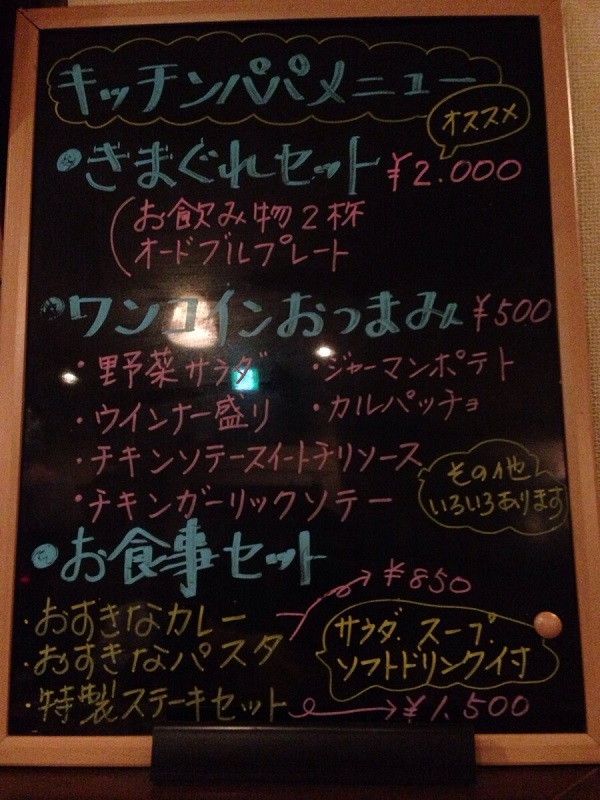 キッチンパパメニュー
オススメ
•きまぐれセット ¥2.000
(お飲み物2杯
オードブルプレート
•ワンコインおつまみ ¥500
・野菜サラダ ・ジャーマンポテト
・ウインナー盛り ・カルパッチョ
・チキンソテースイートチリソース
・チキンガーリックソテー
その他
いろいろあります
•お食事セット
¥850
・おすきなカレー
・おすきなパスタ
サラダ.スープ.
ソフトドリンク付
・特製ステーキセット → ¥1,500